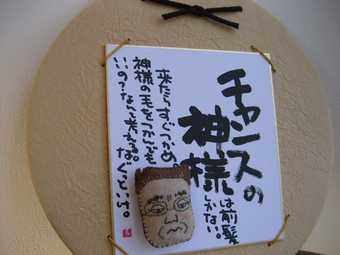 チャンスの
神様は前髪
しかない。
来たらすぐつかめ。
神様の毛をつかんでも
いいの?なんて考える。
なぐっとけ。